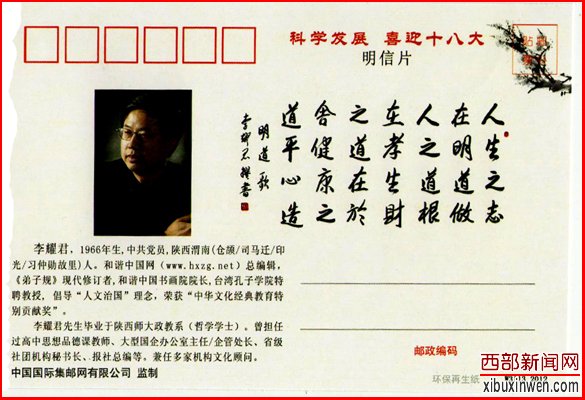 科学发展 喜迎十八大
明信片
人生之志
在明道做
人之道根
在孝生財
之道在於
舍健康之
道平心造
明道歌
李耀君撰書
李耀君，1966年生,中共党员,陕西渭南(仓颉/司马迁/印
光/习仲勋故里)人。和谐中国网（www.hxzg.net）总编辑，
《弟子规》现代修订者,和谐中国书画院院长,台湾孔子学院特
聘教授, 倡导“人文治国”理念，荣获“中华文化经典教育特
别贡献奖”。
李耀君先生毕业于陕西师大政教系（哲学学士）。曾担任
过高中思想品德课教师、大型国企办公室主任/企管处长、省级
社团机构秘书长、报社总编等。兼任多家机构文化顾问。
中国国际集邮网有限公司 监制
邮政编码
环保再生纸
2012
西部新闻网
xibuxinwen.com